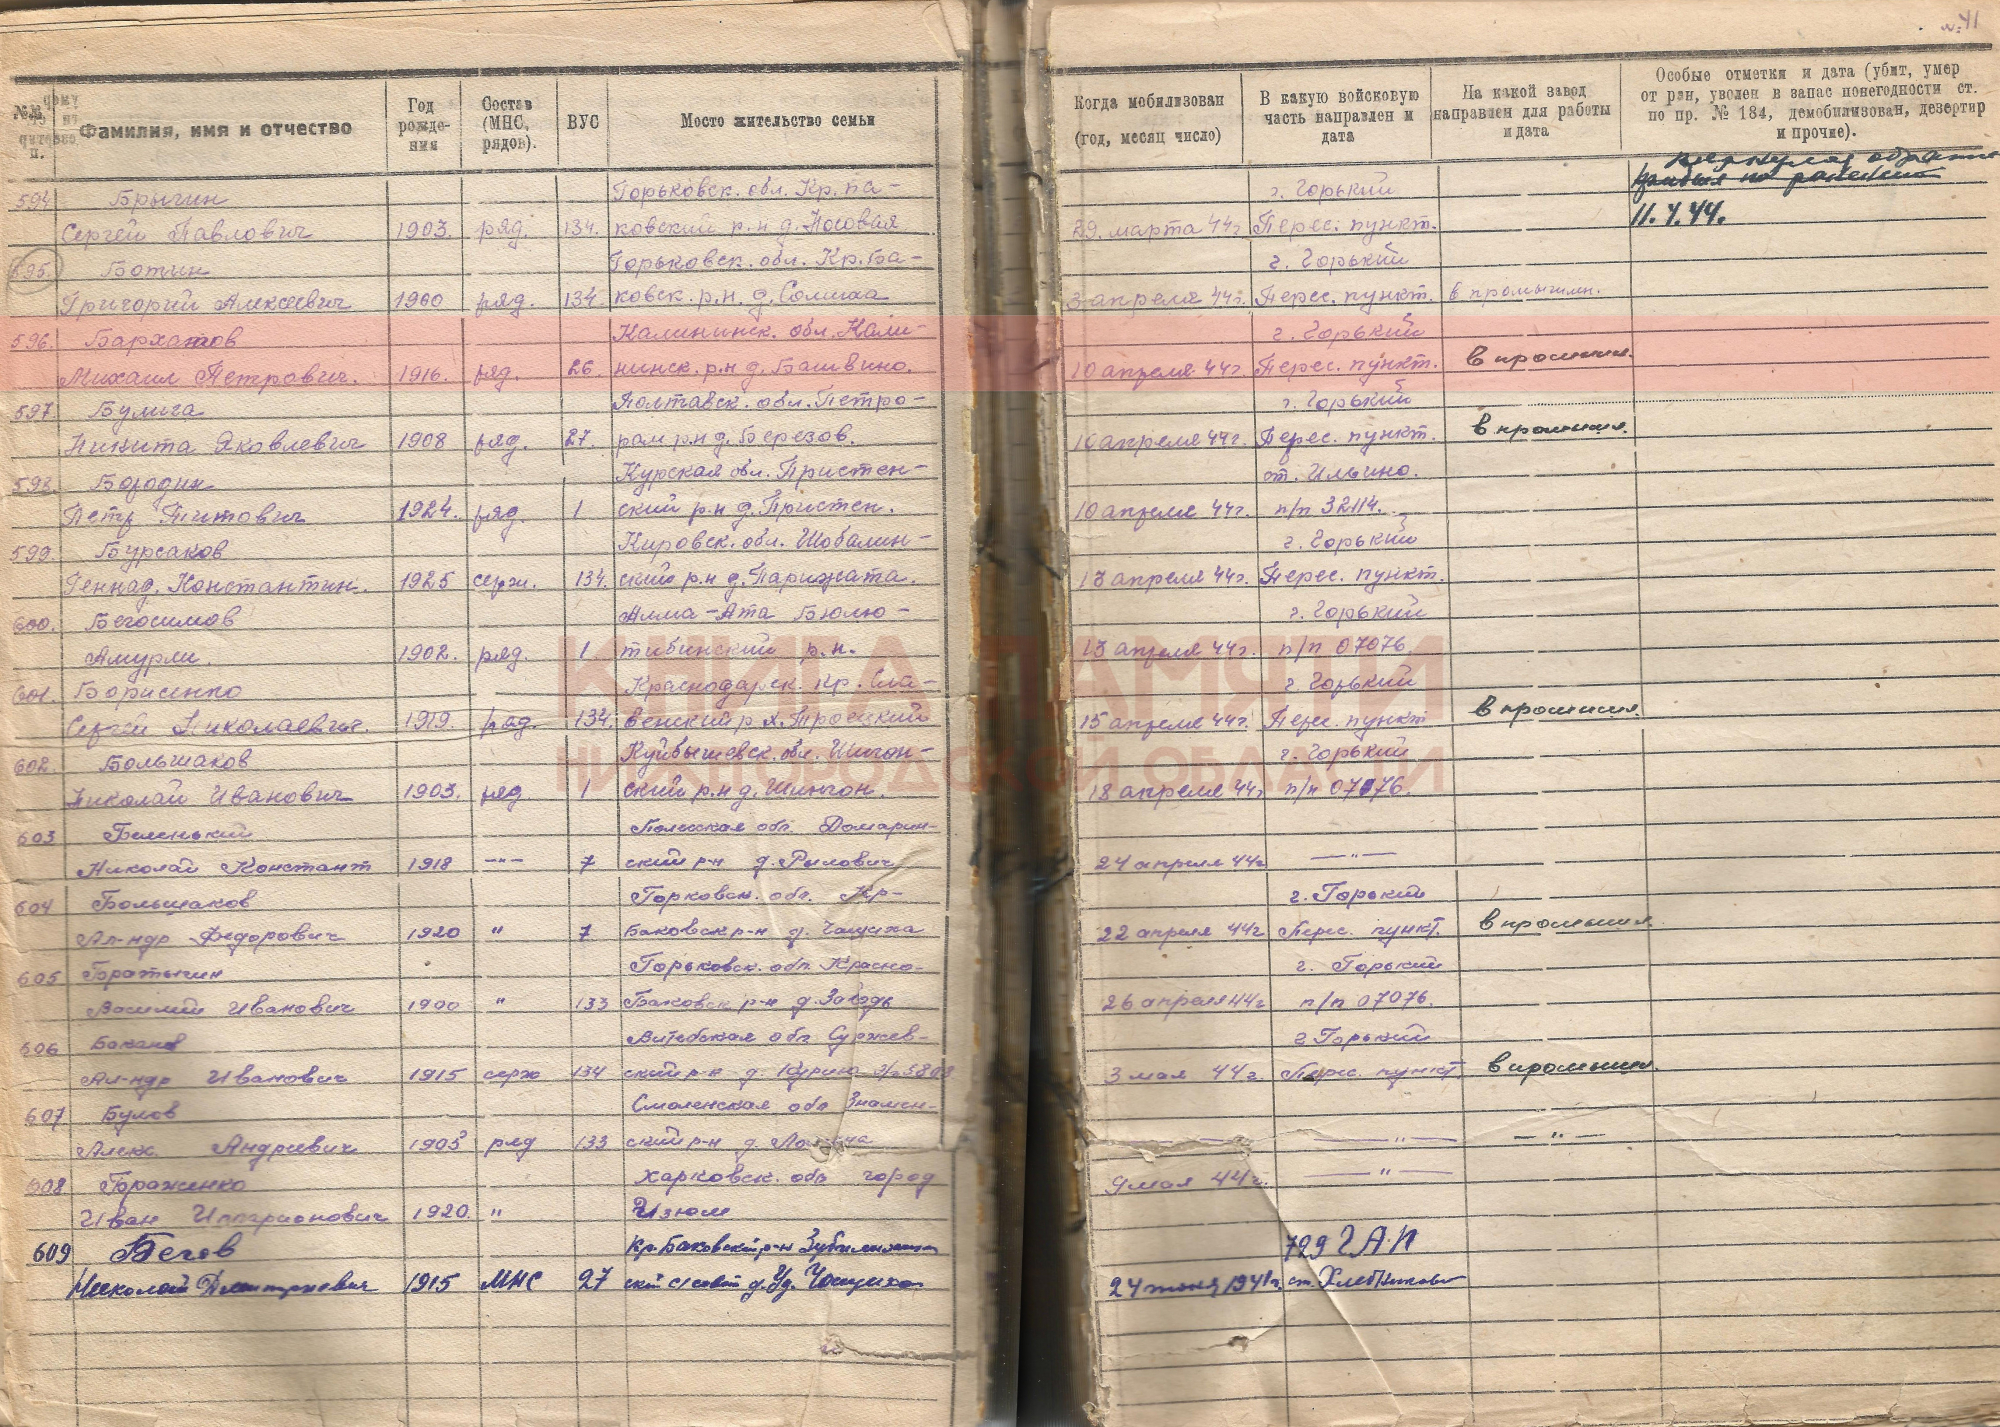 № 41
№№ п. Фамилия, имя и отчество Год рожде-ния Состав (МНС, рядов). ВУС Место жительство семьи Когда мобилизован (год, месяц число) В какую войсковую часть направлен и дата На какой завод направлен для работы и дата Особые отметки и дата (убит, умер от ран, уволен в запас понегодности ст. по пр. № 184, демобилизован, дезертир и прочие).
594 Брыгин Горьковск. обл. Кр. ба- г. Горький
Сергей Павлович 1903. ряд. 134. ковский р.н д. Носовая 29. марта 44г Перес. пункт. 11. 44.
595. Ботин Горьковск. обл. Кр. Ба- г. Горький
Григорий Алексеевич 1900 ряд. 134. ковск. р.н. д. 3 апреля 44г. Перес. пункт. в промышлн.
596. Бархатов Калининск. обл. Кали- г. Горький
Михаил Петрович. 1916. ряд. 26. нинск. р.н д. Башвино. 10 апреля 44г. Перес. пункт. в промышл.
597. Булига Полтавск. обл. Петро- г. Горький
Никита Яковлевич 1908 ряд. 27. рам р.н д. Березов. 10 апреля 44г. Перес. пункт. в промышл.
598. Бородин Курская обл. Пристен- ст. Ильино.
Петр Титович 1924. ряд. 1 ский р.н д. Пристен. 10 апреля 44г. п/п 32114.
599. Бурсаков Кировск. обл. Шабалин- г. Горький
Геннад. Константин. 1925 серж. 134. ский р.н д. Парижата. 13 апреля 44г. Перес. пункт.
600. Бегосимов Алма-Ата Бюлю- г. Горький
Амурли. 1902. ряд. 1 тибинский р.н. 13 апреля 44г. п/п 07076
601. Борисенко Краснодарск. кр. Сла- г. Горький
Сергей Николаевич. 1919. ряд. 134. венский р.н. Троецкий 15 апреля 44г. Перес. пункт в промышл.
602. Большаков Куйбышевск. обл. Шигон- г. Горький
Николай Иванович 1903. ряд 1 ский р.н д. Шигон. 18 апреля 44г п/п 07076.
603 Беленький Полесская обл. Домарин-
Николай Констант 1918 —"— 7 ский р-н д. Рылович 24 апреля 44г —"—
604 Большаков Горковск. обл. Кр- г. Горький
Ал-ндр Федорович 1920 " 7 Баковск р-н д. Чащиха 22 апреля 44г Перес. пункт. в промышл.
605 Братыгин Горьковск. обл. Красно- г. Горький
Василий Иванович 1900 " 133 Баковск р-н д. Заводь 26 апреля 44г п/п 07076.
606 Баканов Витебская обл Суржев- г Горький
Ал-ндр Иванович 1915 серж 134 ский р-н д. 3 мая 44г. Перес. пункт. в промышл.
607 Булов Смоленская обл Знамен-
Алекс. Андреевич 1903 ряд 133 ский р-н д. — " — — " —
608 Бораженко Харковск. обл город 9 мая 44г. — " —
Иван Иларионович 1920. " Изюм
609 Бегов Кр. Баковский р-н Зубилихин 729 ГАП
Николай Дмитриевич 1915 МНС 27 ский с/совет д. Уд. Чащиха 24 июня 1941г. ст. Хлебниково
КНИГА ПАМЯТИ
НИЖЕГОРОДСКОЙ ОБЛАСТИ